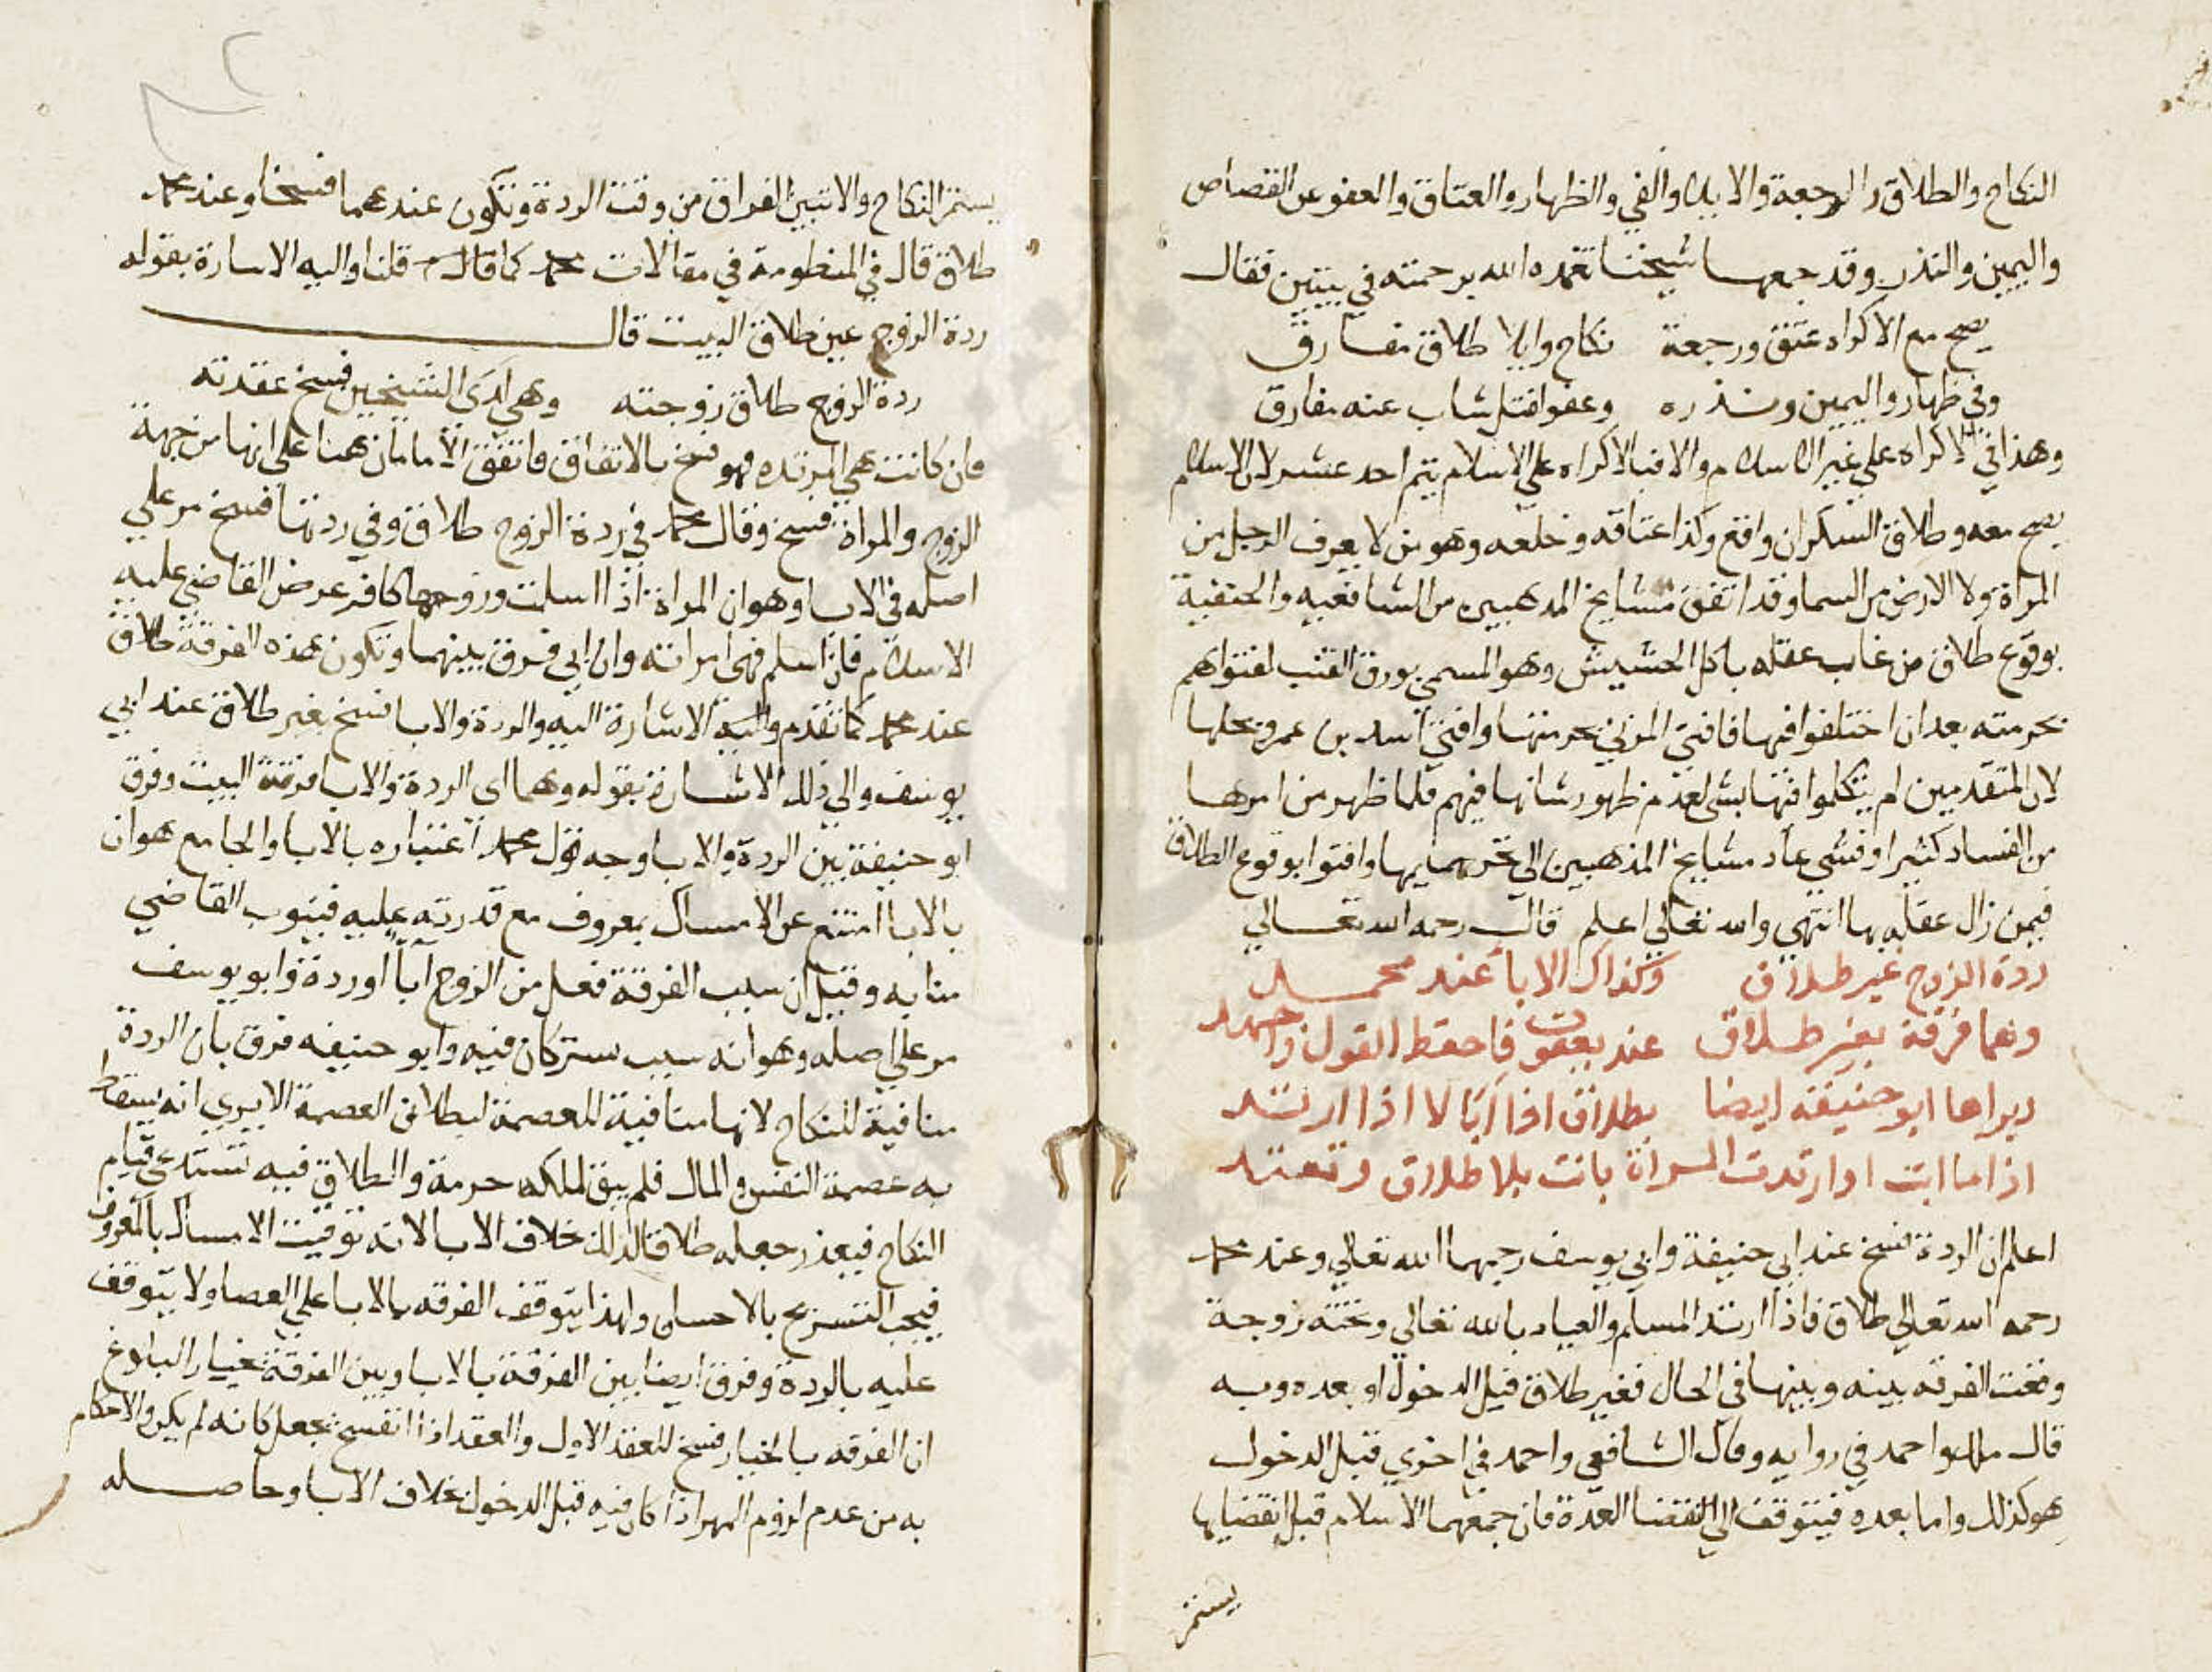 النكاح والطلاق والرجعة والايلا والفي والظهار والعتاق والعفو عن القصاص
واليمين والنذر وقد جمعها شيخنا تغمده الله برحمته في بيتين فقال
يصح مع الاكراه عتق ورجعة نكاح وايلا طلاق مفارق
وفي ظهار واليمين ونذره وعفو لقتل شاب عنه مفارق
وهذا في الاكراه علي غير الاسلام والا فبالاكراه علي الاسلام يتم احد عشر لان الاسلام
يصح معه وطلاق السكران واقع وكذا اعتاقه وخلعه وهو من لا يعرف الرجل من
المراة ولا الارض من السما وقد اتفق مشايخ المدهبين من الشافعيه والحنفية
بوقوع طلاق من غاب عقله باكل الحشيش وهو المسمي بورق القنب لفتواهم
بحرمته بعد ان اختلفوا فيها فافتي المزني بحرمتها وافتي اسد بن عمرو بحلها
لان المتقدمين لم يتكلموا فيها بشي لعدم ظهور شانها فيهم فلما ظهر من امرها
من الفساد كثيرا وفشي عاد مشايخ المذهبين الي تحريمها وافتوا بوقوع الطلاق
فيمن زال عقله بها انتهي والله تعالي اعلم قال رحمه الله تعالي
ردة الزوج غير طلاق وكذاك الابا عند محمد
وهما فرقة بغير طلاق عند يعقوب فاحفظ القول واحمد
ويراها ابو حنيفة ايضا بطلاق اذا ابا لا اذا ارتد
اذا ما ابت او ارتدت المراة بانت بلا طلاق وتعتد
اعلم ان الردة فسخ عند ابي حنيفة وابي يوسف رحمهما الله تعالي وعند محمد
رحمه الله تعالي طلاق فاذا ارتد المسلم والعياد بالله تعالي وتحته زوجة
وقعت الفرقه بينه وبينها في الحال فغير طلاق قبل الدخول او بعده وبه
قال مالك واحمد في روايه وقال الشافعي واحمد في اخري قبل الدخول
هو كذلك واما بعده فيتوقف الي انقضا العدة فان جمعهما الاسلام قبل انقضايها
يستمر
يستمر النكاح والا تبين الفراق من وقت الردة وتكون عندهما فسخا وعند محمد
طلاق قال في المنظومة في مقالات محمد كما قال قلنا واليه الاسارة بقوله
ردة الزوج عين طلاق البيت قال
ردة الزوج طلاق زوجته وهي لدي الشيخين فسخ عقدته
فان كانت هي المرتده فهو فسخ بالاتفاق فاتفق الامامان هنا علي انها من جهة
الزوج والمراة فسخ وقال محمد في ردة الزوج طلاق وفي ردتها فسخ مر علي
اصله في الابا وهو ان المراة اذا اسلمت وزوجها كافر عرض القاضي عليه
الاسلام فان اسلم فهي امراته وان ابي فرق بينهما وتكون هذه الفرقة طلاق
عند محمد كما تقدم والية الاشارة اليه والردة والابا فسخ بغير طلاق عند ابي
يوسف والي ذلك الاشارة بقوله وهما اي الردة والابا فرقة البيت وفرق
ابو حنيفة بين الردة والابا وجه قول محمد اعتباره بالابا والجامع هو ان
بالابا امتنع عن الامساك بمعروف مع قدرته عليه فينوب القاضي
منابه وقيل ان سبب الفرقة فعل من الزوج ابا او ردة وابو يوسف
مر علي اصله وهو انه سبب يستركان فيه وابو حنيفه فرق بان الردة
منافية للنكاح لانها منافية للعصمة لبطلان العصمة الا يري انه يسقط
به عصمة النفس والمال فلم يبق لملكه حرمة والطلاق فيه تستدعي قيام
النكاح فيبعد رجعله طلاقا لذلك خلاف الابا لانه توقيت الامساك بالمعروف
فيجب التسريح بالاحسان ولهذا يتوقف الفرقه بالابا علي القضا ولا يتوقف
عليه بالردة وفرق ايضا بين الفرقة بالابا وبين الفرقة بخيار البلوغ
ان الفرقه بالخيار فسخ للعقد الاول والعقد اذا انفسخ بجعل كانه لم يكن والاحكام
به من عدم لزوم المهر اذا كان فيه قبل الدخول بخلاف الابا وحاصله